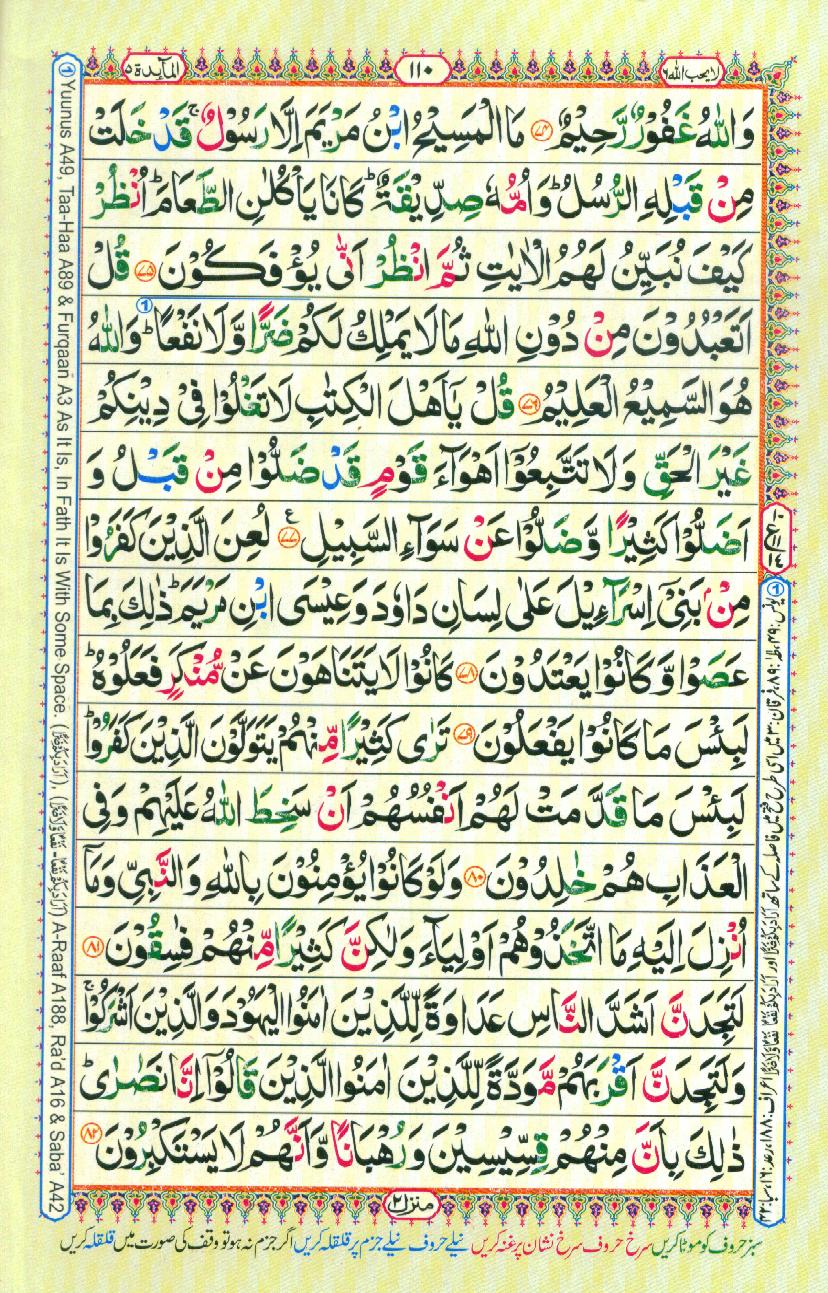 لا یحب اللہ ٦
١١٠
المآئدة ٥
وَاللّٰهُ غَفُوْرٌ رَّحِیْمٌ ﴿۷۴﴾ مَا الْمَسِیْحُ ابْنُ مَرْیَمَ اِلَّا رَسُوْلٌ ۚ قَدْ خَلَتْ
مِنْ قَبْلِهِ الرُّسُلُ ؕ وَاُمُّهٗ صِدِّیْقَةٌ ؕ كَانَا یَاْكُلٰنِ الطَّعَامَ ؕ اُنْظُرْ
كَیْفَ نُبَیِّنُ لَهُمُ الْاٰیٰتِ ثُمَّ انْظُرْ اَنّٰی یُؤْفَكُوْنَ ﴿۷۵﴾ قُلْ
اَتَعْبُدُوْنَ مِنْ دُوْنِ اللّٰهِ مَا لَا یَمْلِكُ لَكُمْ ضَرًّا وَّلَا نَفْعًا ؕ وَاللّٰهُ
هُوَ السَّمِیْعُ الْعَلِیْمُ ﴿۷۶﴾ قُلْ یٰۤاَهْلَ الْكِتٰبِ لَا تَغْلُوْا فِیْ دِیْنِكُمْ
غَیْرَ الْحَقِّ وَلَا تَتَّبِعُوْۤا اَهْوَآءَ قَوْمٍ قَدْ ضَلُّوْا مِنْ قَبْلُ وَ
اَضَلُّوْا كَثِیْرًا وَّضَلُّوْا عَنْ سَوَآءِ السَّبِیْلِ ﴿۷۷﴾ لُعِنَ الَّذِیْنَ كَفَرُوْا
مِنْۢ بَنِیْۤ اِسْرَآءِیْلَ عَلٰی لِسَانِ دَاوٗدَ وَعِیْسَی ابْنِ مَرْیَمَ ؕ ذٰلِكَ بِمَا
عَصَوْا وَّكَانُوْا یَعْتَدُوْنَ ﴿۷۸﴾ كَانُوْا لَا یَتَنَاهَوْنَ عَنْ مُّنْكَرٍ فَعَلُوْهُ ؕ
لَبِئْسَ مَا كَانُوْا یَفْعَلُوْنَ ﴿۷۹﴾ تَرٰی كَثِیْرًا مِّنْهُمْ یَتَوَلَّوْنَ الَّذِیْنَ كَفَرُوْا ؕ
لَبِئْسَ مَا قَدَّمَتْ لَهُمْ اَنْفُسُهُمْ اَنْ سَخِطَ اللّٰهُ عَلَیْهِمْ وَفِی
الْعَذَابِ هُمْ خٰلِدُوْنَ ﴿۸۰﴾ وَلَوْ كَانُوْا یُؤْمِنُوْنَ بِاللّٰهِ وَالنَّبِیِّ وَمَاۤ
اُنْزِلَ اِلَیْهِ مَا اتَّخَذُوْهُمْ اَوْلِیَآءَ وَلٰكِنَّ كَثِیْرًا مِّنْهُمْ فٰسِقُوْنَ ﴿۸۱﴾
لَتَجِدَنَّ اَشَدَّ النَّاسِ عَدَاوَةً لِّلَّذِیْنَ اٰمَنُوا الْیَهُوْدَ وَالَّذِیْنَ اَشْرَكُوْا ۚ
وَلَتَجِدَنَّ اَقْرَبَهُمْ مَّوَدَّةً لِّلَّذِیْنَ اٰمَنُوا الَّذِیْنَ قَالُوْۤا اِنَّا نَصٰرٰی ؕ
ذٰلِكَ بِاَنَّ مِنْهُمْ قِسِّیْسِیْنَ وَرُهْبَانًا وَّاَنَّهُمْ لَا یَسْتَكْبِرُوْنَ ﴿۸۲﴾
منزل ٢
سبز حروف کو موٹا کریں سرخ حروف سرخ نشان پر غنہ کریں نیلے حروف نیلے جزم پر قلقلہ کریں اگر جزم نہ ہو تو وقف کی صورت میں قلقلہ کریں
① Yuunus A49, Taa-Haa A89 & Furqaan A3 As It Is, In Fath It Is With Some Space. A-Raaf A188, Ra'd A16 & Saba' A42